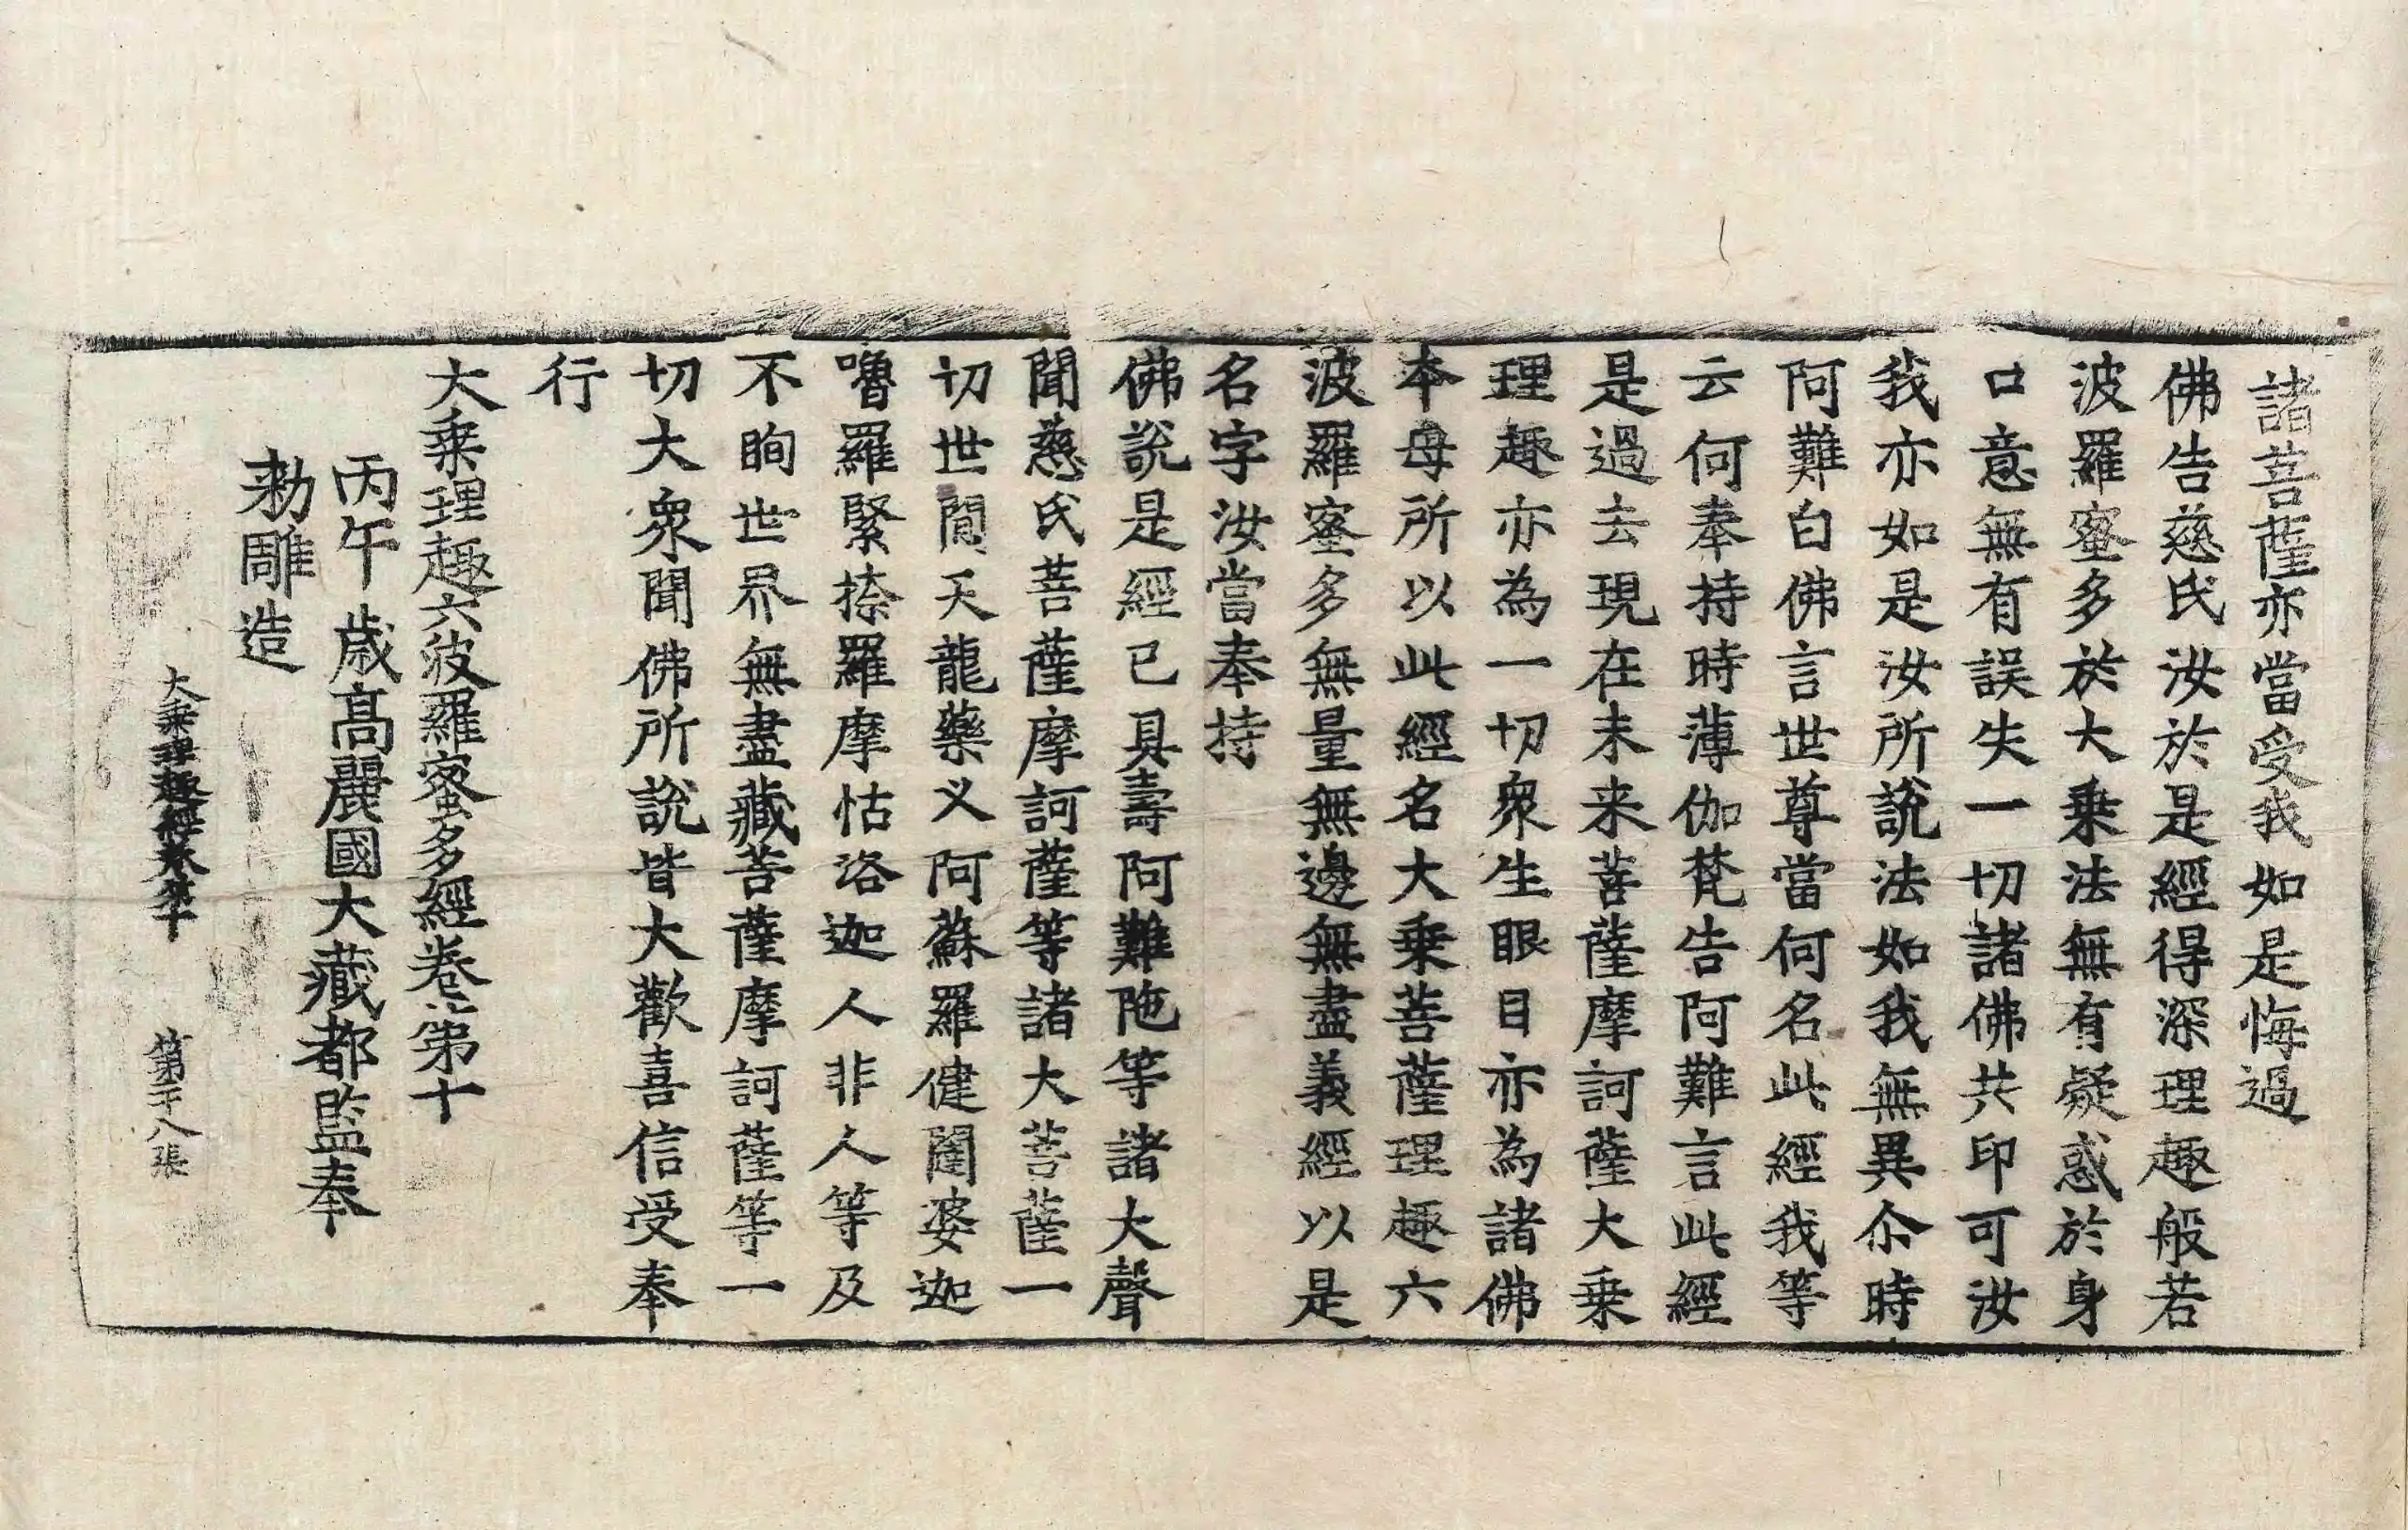 諸菩薩亦當受我如是悔過
佛告慈氏汝於是經得深理趣般若
波羅蜜多於大乗法無有疑惑於身
口意無有誤失一切諸佛共印可汝
我亦如是汝所說法如我無異尒時
阿難白佛言世尊當何名此經我等
云何奉持時薄伽梵告阿難言此經
是過去現在未来菩薩摩訶薩大乗
理趣亦為一切衆生眼目亦為諸佛
本母所以此經名大乗菩薩理趣六
波羅蜜多無量無邊無盡義經以是
名字汝當奉持
佛說是經已具壽阿難陁等諸大聲
聞慈氏菩薩摩訶薩等諸大菩薩一
切世閒天龍藥义阿蘇羅健闥婆迦
嚕羅緊捺羅摩怙洛迦人非人等及
不眴世界無盡藏菩薩摩訶薩等一
切大衆聞佛所說皆大歡喜信受奉
行
大乗理趣六波羅蜜多經卷第十
丙午歲髙麗國大藏都監奉
勑雕造
大乗理趣經卷第十 第二十八張